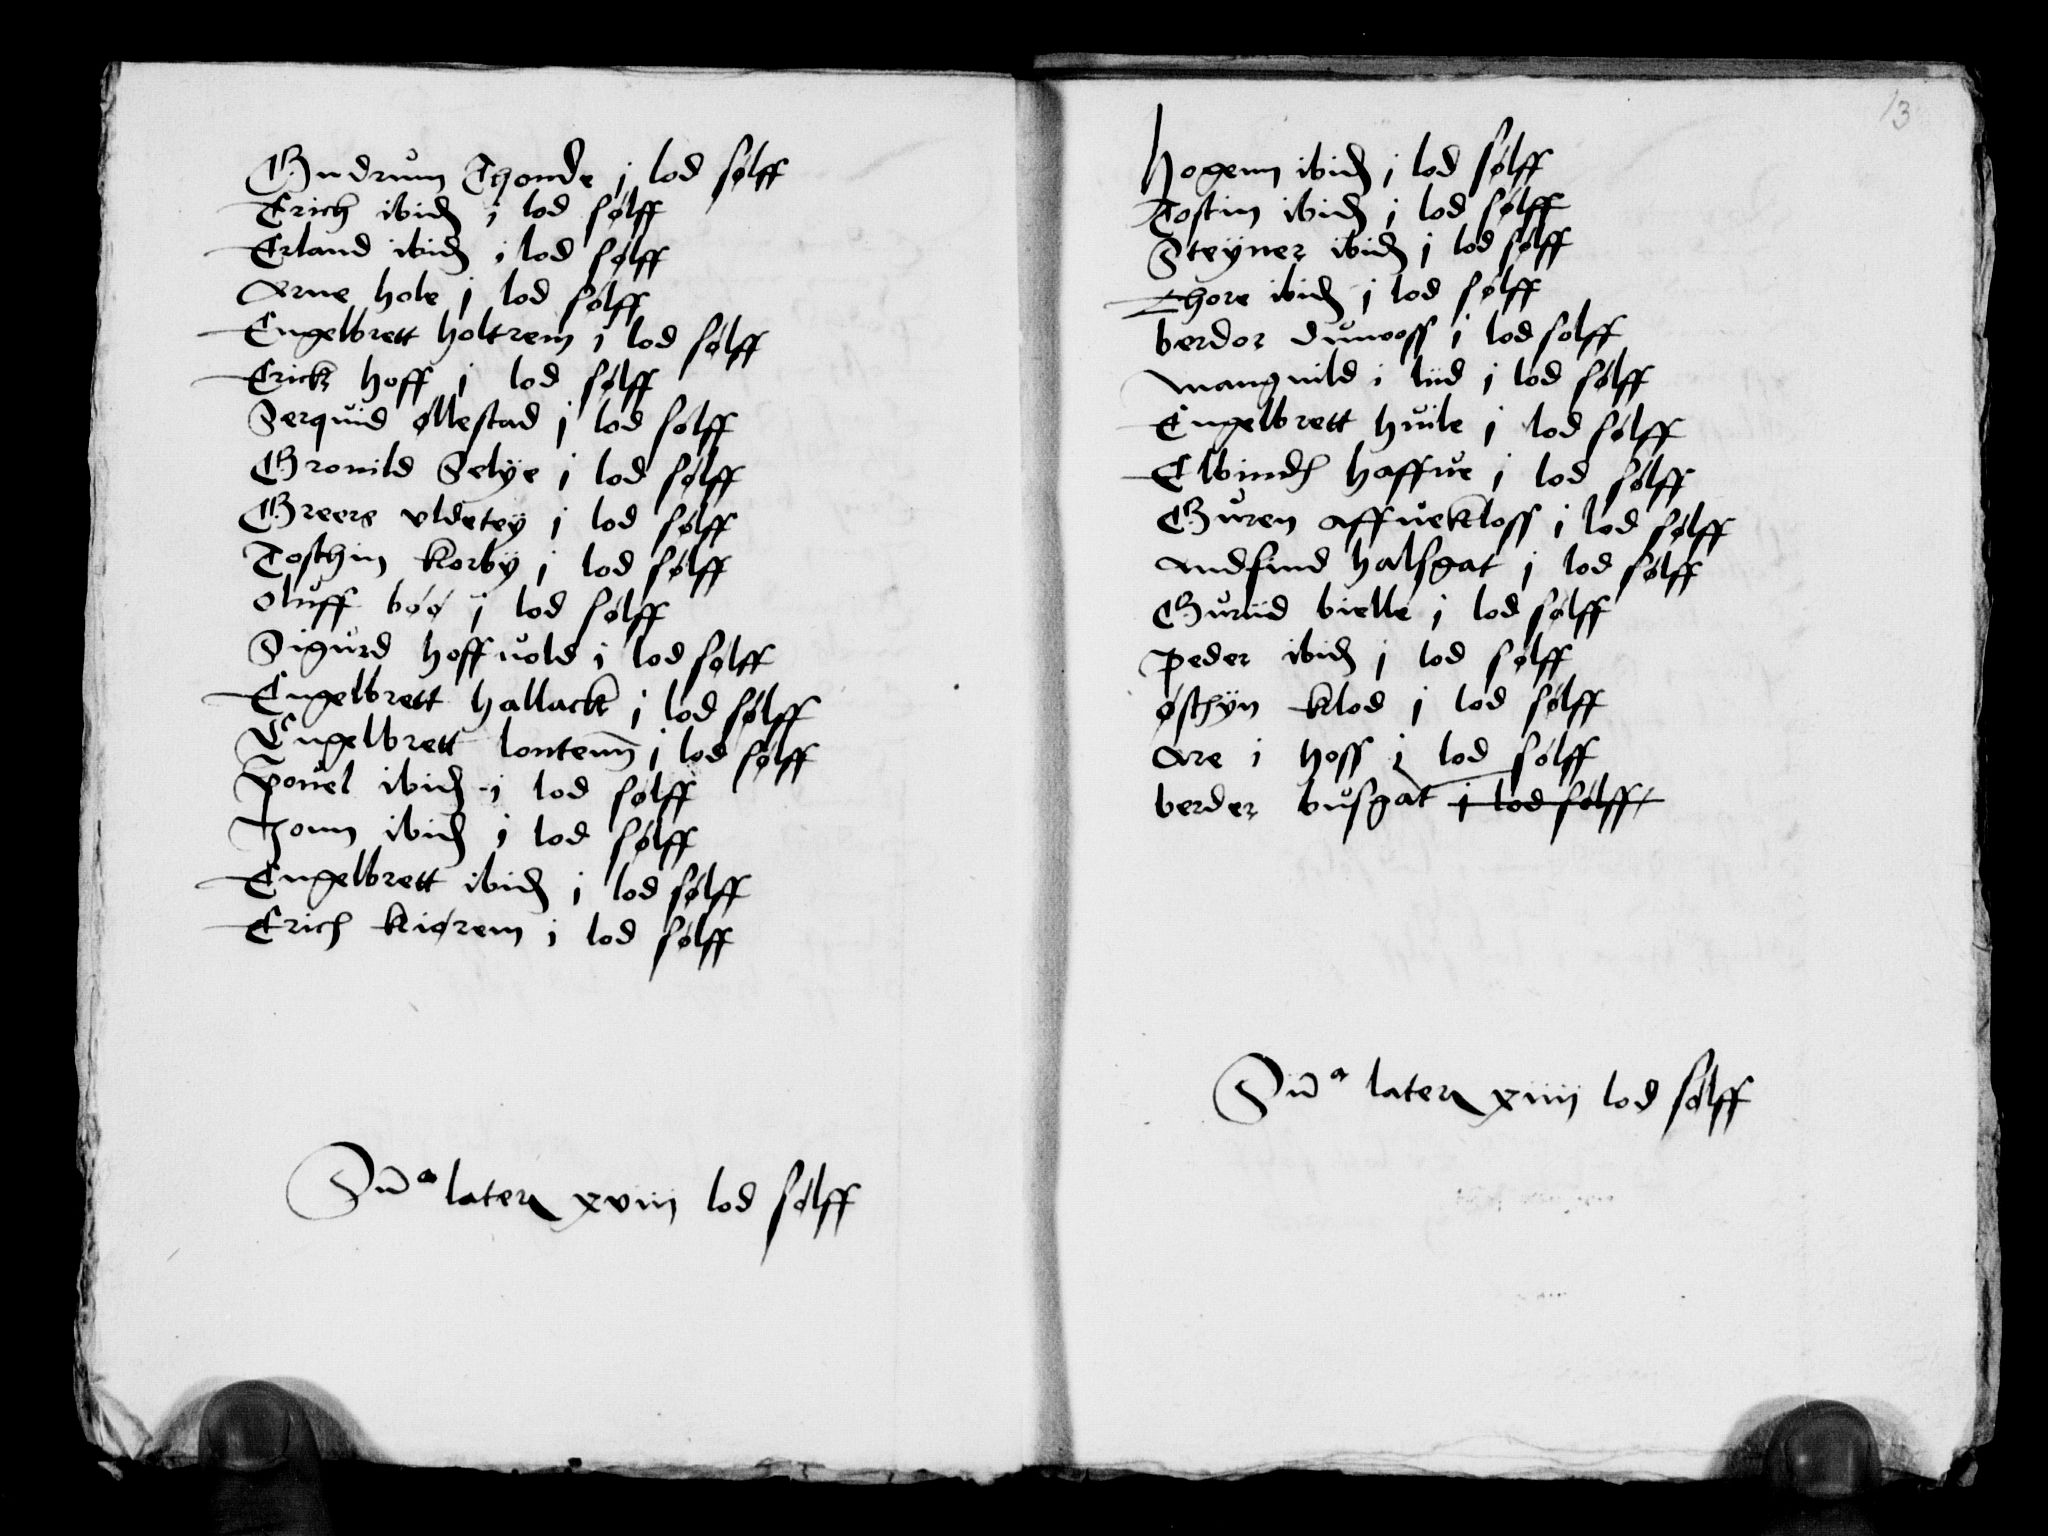 Gudrum Thonde j lod sølff
Erich ibid j lod sølff
Erland ibid j lod sølff
Arne hole j lod sølff
Engelbrett holtrem j lod sølff
Erick hoff j lod sølff
Serquid øllestad j lod sølff
Gronild Selye j lod sølff
Greers vldetey j lod sølff
Tosthin korby j lod sølff
Oluff bøø j lod sølff
Sigurd hoffuold j lod sølff
Engelbrett hallack j lod sølff
Engelbrett lontenn j lod sølff
Pouel ibid j lod sølff
Jonn ibid j lod sølff
Engelbrett ibid j lod sølff
Erich kiørem j lod sølff
Sum̄a later xviij lod sølff
13
Hogenn ibid j lod sølff
Tostin ibid j lod sølff
Steyner ibid j lod sølff
Thore ibid j lod sølff
berdor dumoss j lod sølff
Mangnild i liid j lod sølff
Engelbrett huile j lod sølff
Elbindh haffue j lod sølff
Guren affuekloss j lod sølff
Andfind halsgat j lod sølff
Guriid bielle j lod sølff
Peder ibid j lod sølff
Østhyn klod j lod sølff
Are i hoss j lod sølff
berder busgat j lod sølff
Sum̄a later xiiij lod sølff